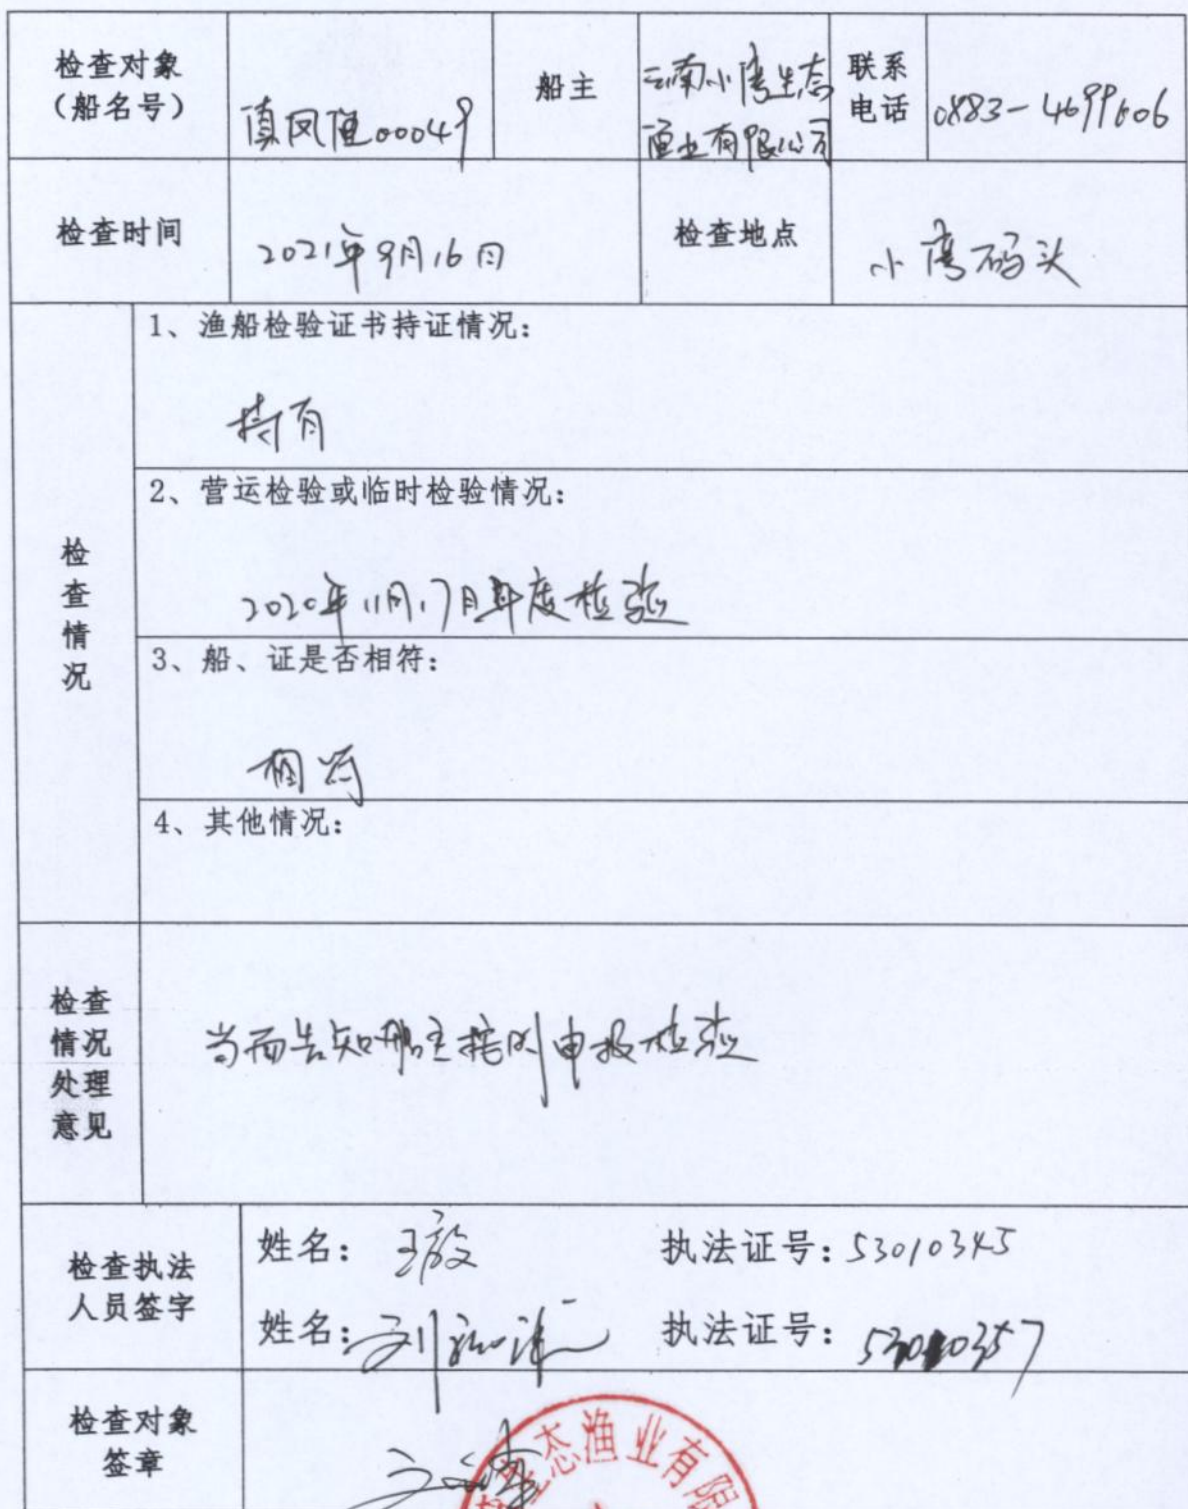 检查对象
（船名号）
滇凤渔00049
船主
云南小湾生态
渔业有限公司
联系
电话
0883-4699606
检查时间
2021年9月16日
检查地点
小湾码头
检查情况
1、渔船检验证书持证情况：
持有
2、营运检验或临时检验情况：
2020年11月17日年度检验
3、船、证是否相符：
相符
4、其他情况：
检查
情况
处理
意见
当面告知船主按时申报检验
检查执法
人员签字
姓名：
执法证号：53010345
姓名：刘
执法证号：53010357
检查对象
签章
生态渔业有限